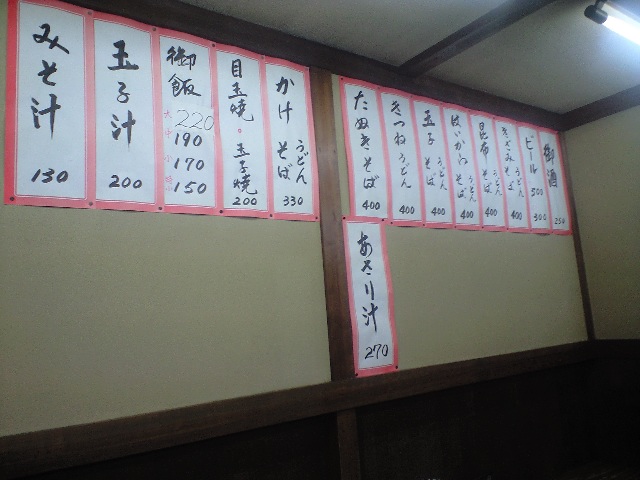 みそ汁
130
玉子汁
200
御飯
大 220
中 190
小 170
150
目玉焼・玉子焼
200
かけ うどん そば
330
たぬきそば
400
きつねうどん
400
玉子 うどん そば
400
はいからうどん そば
400
昆布 うどん そば
400
きざみうどん そば
400
ビール
500
300
御酒
250
あさり汁
270